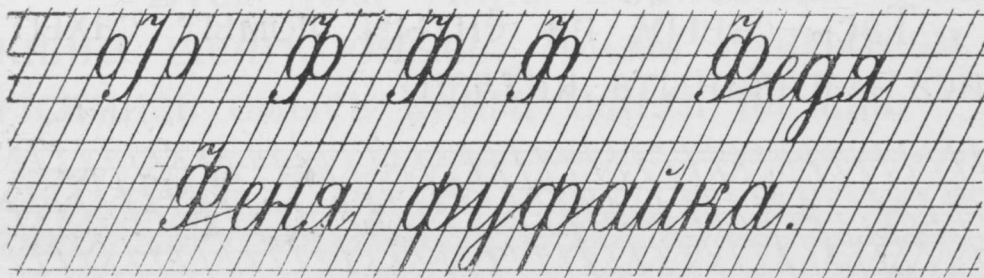 Ф Ф Ф Федя
Феня фуфайка.